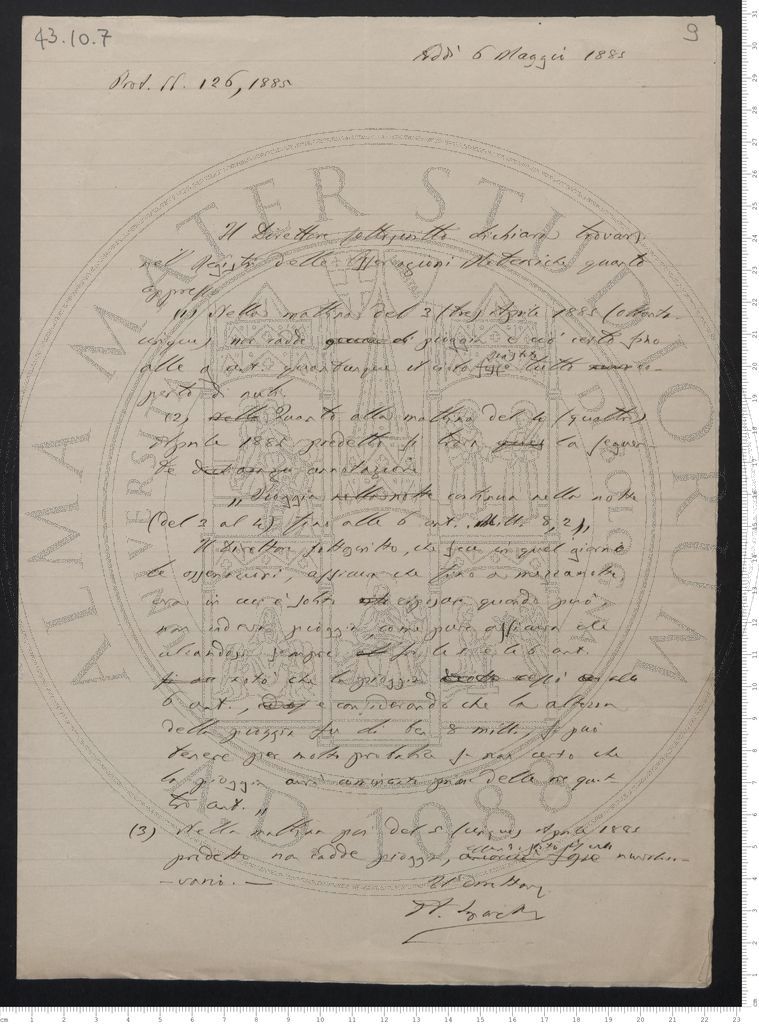 43.10.7
9
Addì 6 Maggio 1885
Prot. N. 126, 1885
Il Direttore sottoscritto dichiara trovarsi
nell' delle Osservazioni Meteoriche quanto
appresso
(1) Nella mattina del 3 (tre) Aprile 1885 (ottanta-
cinque) non cadde pioggia e ciò certo fino
alle ant. quantunque il cielo fosse tutto co-
perto di nubi.
(2) Quanto alla mattina del 4 (quattro)
Aprile 1885 predetto si trova la seguen-
te annotazione
„ Pioggia continua nella notte
(del 3 al 4) fino alle 6 ant. Mill. 8,2 „
Il Direttore sottoscritto, che fece in quel giorno
le osservazioni, assicura che fino a mezzanotte,
ora in cui è solito riposare quando può,
non pioggia, come pure assicura che
alzandosi sempre fra le 5 e le 6 ant.
notò che la pioggia cessò alle
6 ant., e considerando che la altezza
della pioggia fu di ben 8 mill., si può
tenere per molto probabile se non certo che
la pioggia avrà cominciato prima delle ore quat-
tro ant. „
(3) Nella mattina poi del 5 (cinque) Aprile 1885
predetto non cadde pioggia, nuvolo-
Il Direttore